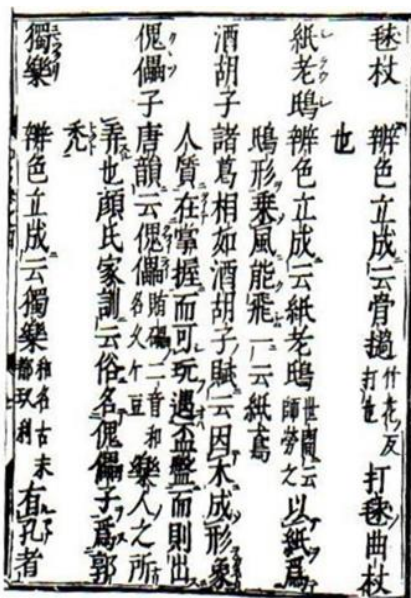 毬杖 辨色立成云骨撾 竹花反 打也 打毬曲杖
也
紙老鴟 辨色立成云紙老鴟 世間云師勞之 以紙爲
鴟形乗風能飛一云紙鳶
酒胡子 諸葛相如酒胡子賦云因木成形象
人質在掌握而可玩遇盃盤而則出
傀儡子 唐韻云傀儡 賄礧二音和名久々豆 樂人之所
弄也顔氏家訓云俗名傀儡子爲郭
禿
獨樂 辨色立成云獨樂 和名古末都玖利 有孔者